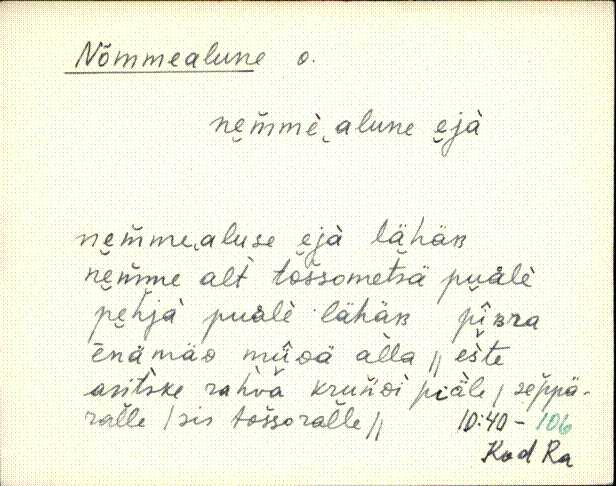 Nõmmealune o.
nem̆mè‿alune ejà
nem̆me‿aluse ejà lähäʙ
nem̆me alt̀ tos̆sometsä puàlè
pehjà puàlè lähäʙ pîʙra
ēnämäᴅ mûᴅä alla || es̆te
asitske rahvà krun̆ᴅi piäle / sep̆pä-
ral̆le / sis tos̆soral̆le ||
10:40 - 106
Kod Ra